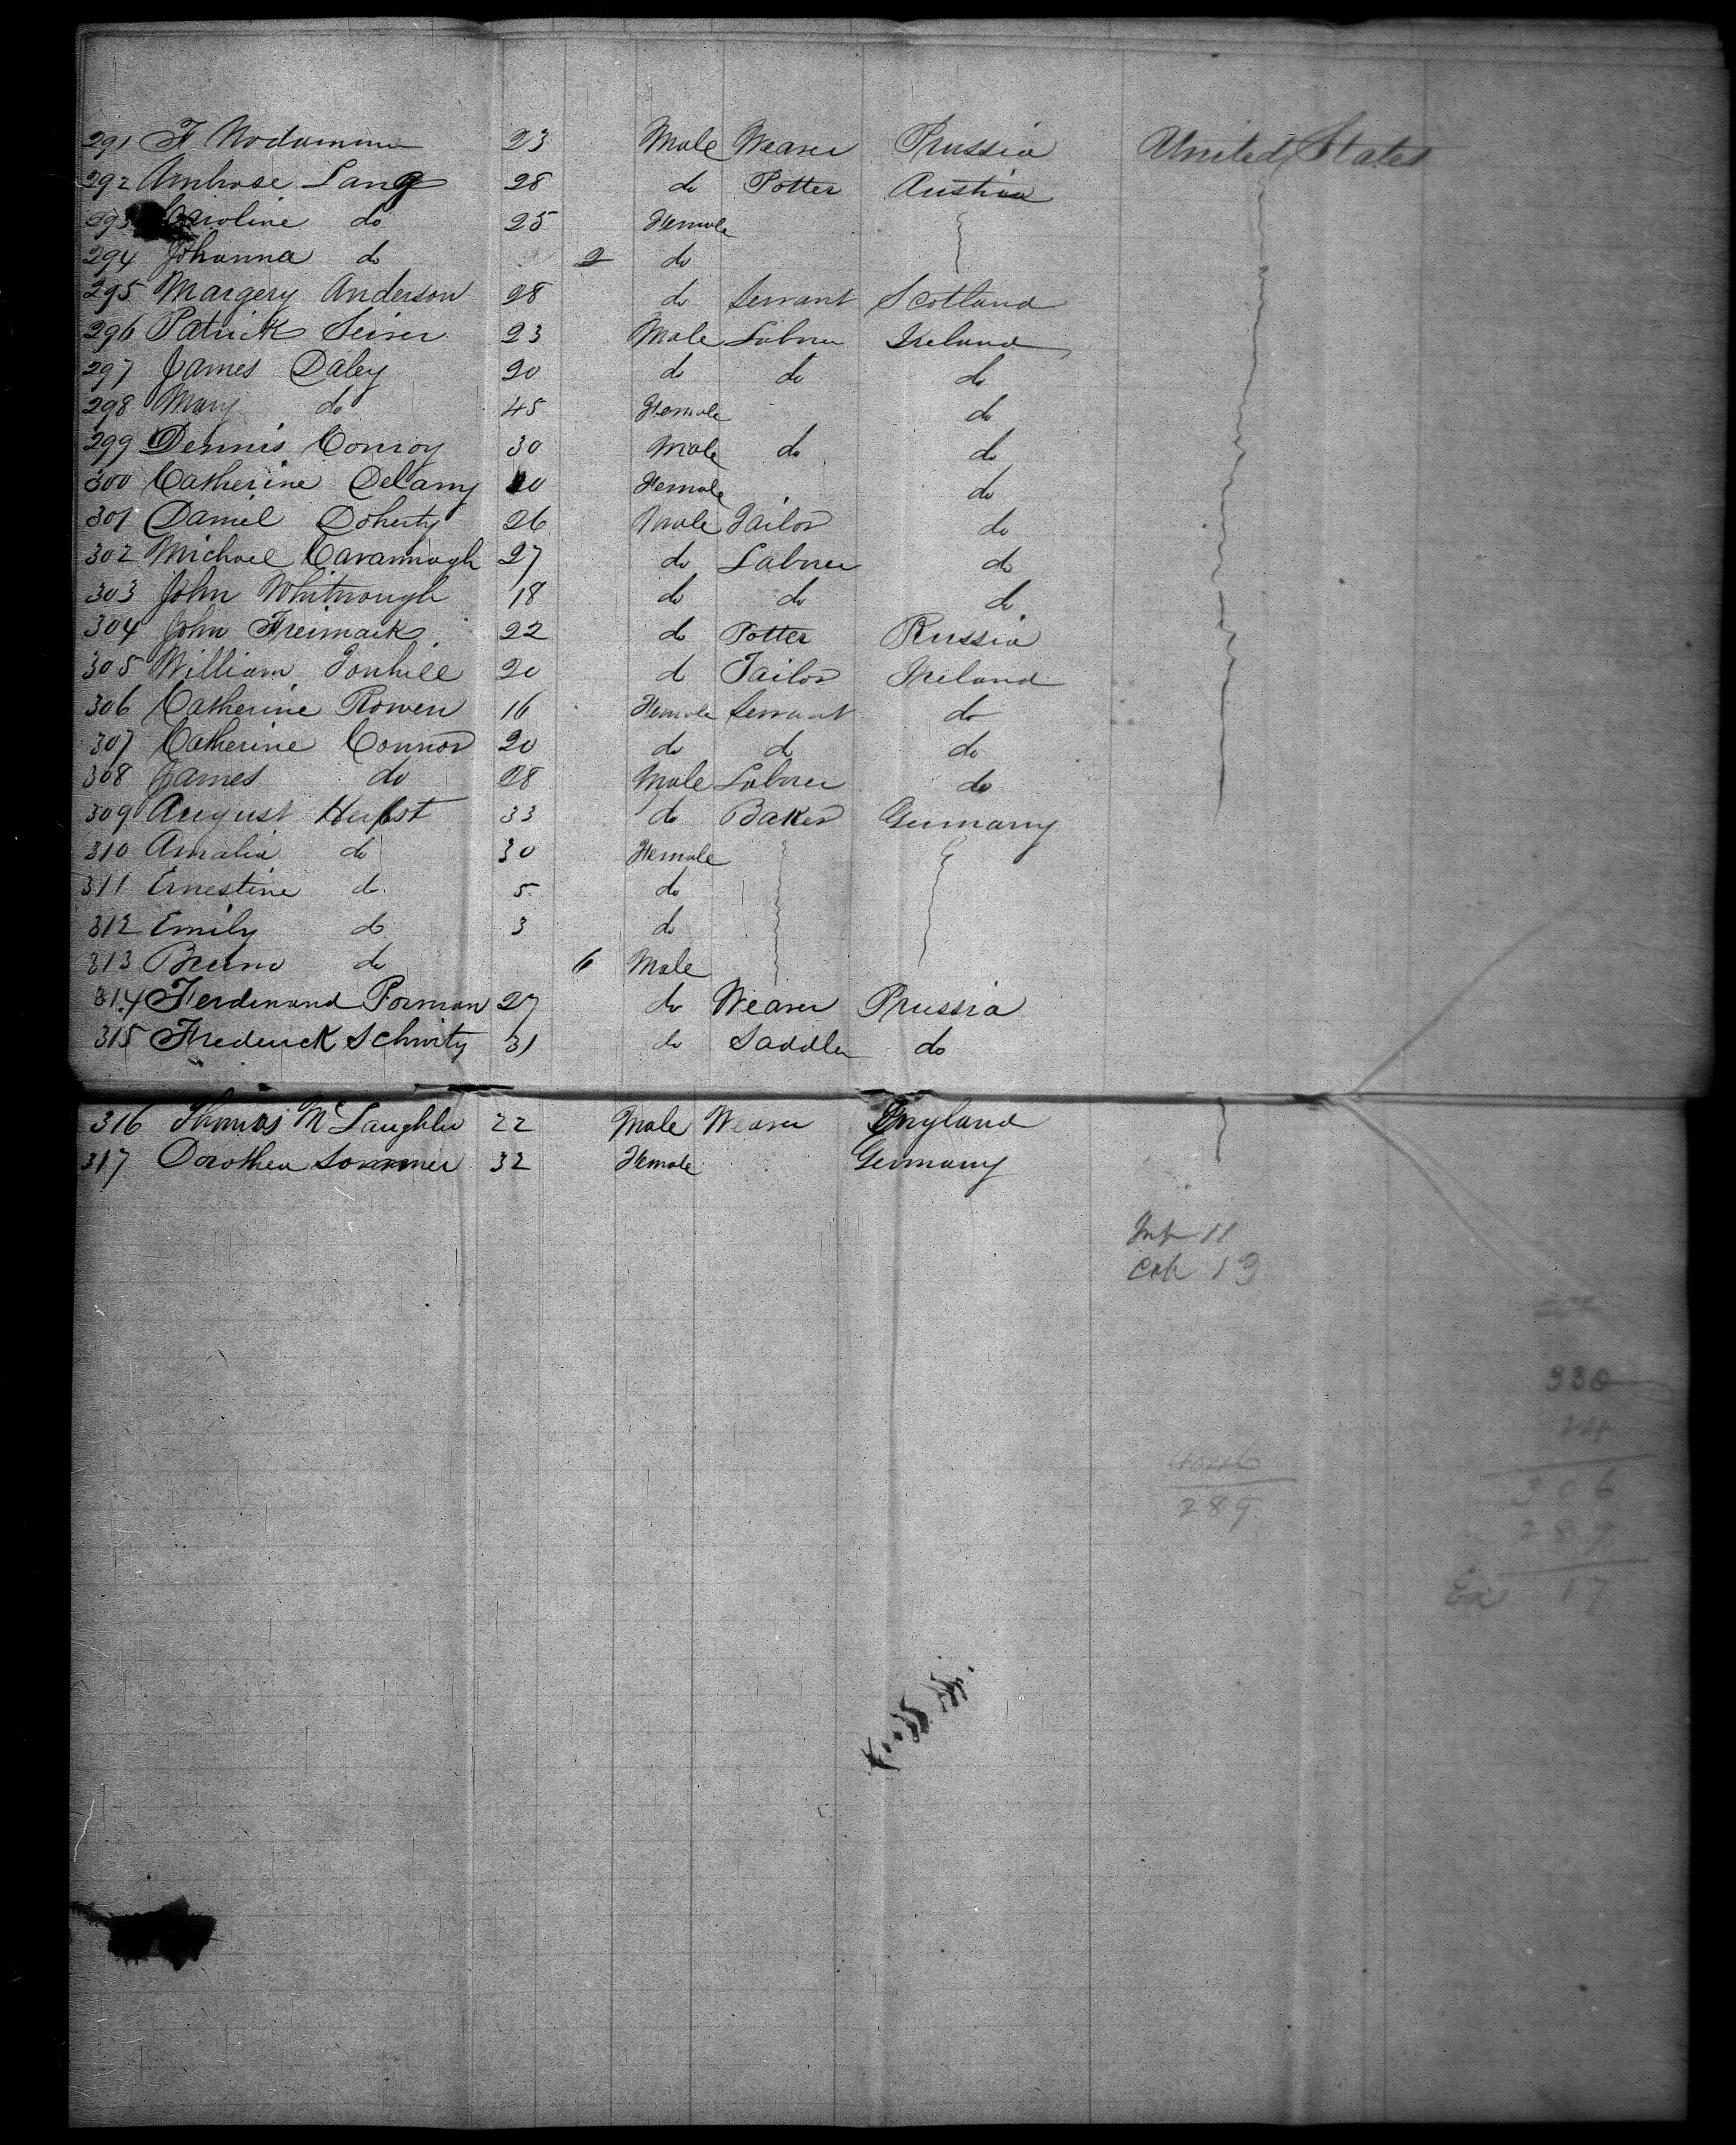 291 F Nodumme 23 Male Weaver Prussia United States
292 Ambrose Lang 28 do Potter Austria
293 Caroline do 25 Female
294 Johanna do 2 do
295 Margery Anderson 28 do Servant Scotland
296 Patrick 23 Male Labrer Ireland
297 James Daley 20 do do do
298 Mary do 45 Female do
299 Dennis Conroy 30 Male do do
300 Catherine Delany 20 Female do
301 Daniel Doherty 26 Male Tailor do
302 Michael Cavannagh 27 do Labrer do
303 John Whitnough 18 do do do
304 John Freimark 22 do Potter Russia
305 William 20 d Tailor Ireland
306 Catherine Rowen 16 Female Servant do
307 Catherine Connor 20 do d do
308 James do 28 Male Labrer do
309 August Herbst 33 do Baker Germany
310 Amalia do 30 Female
311 Ernestine do 5 do
312 Emily do 3 do
313 Bruno do 6 Male
314 Ferdinand Porman 27 do Weaver Prussia
315 Frederick Schmitz 31 do Saddler do
316 Thomas McLaughlin 22 Male Weaver England
317 Dorothea Sommer 32 Female Germany
Inf 11
Ceh 13
330
24
306
289
289
Ex 17